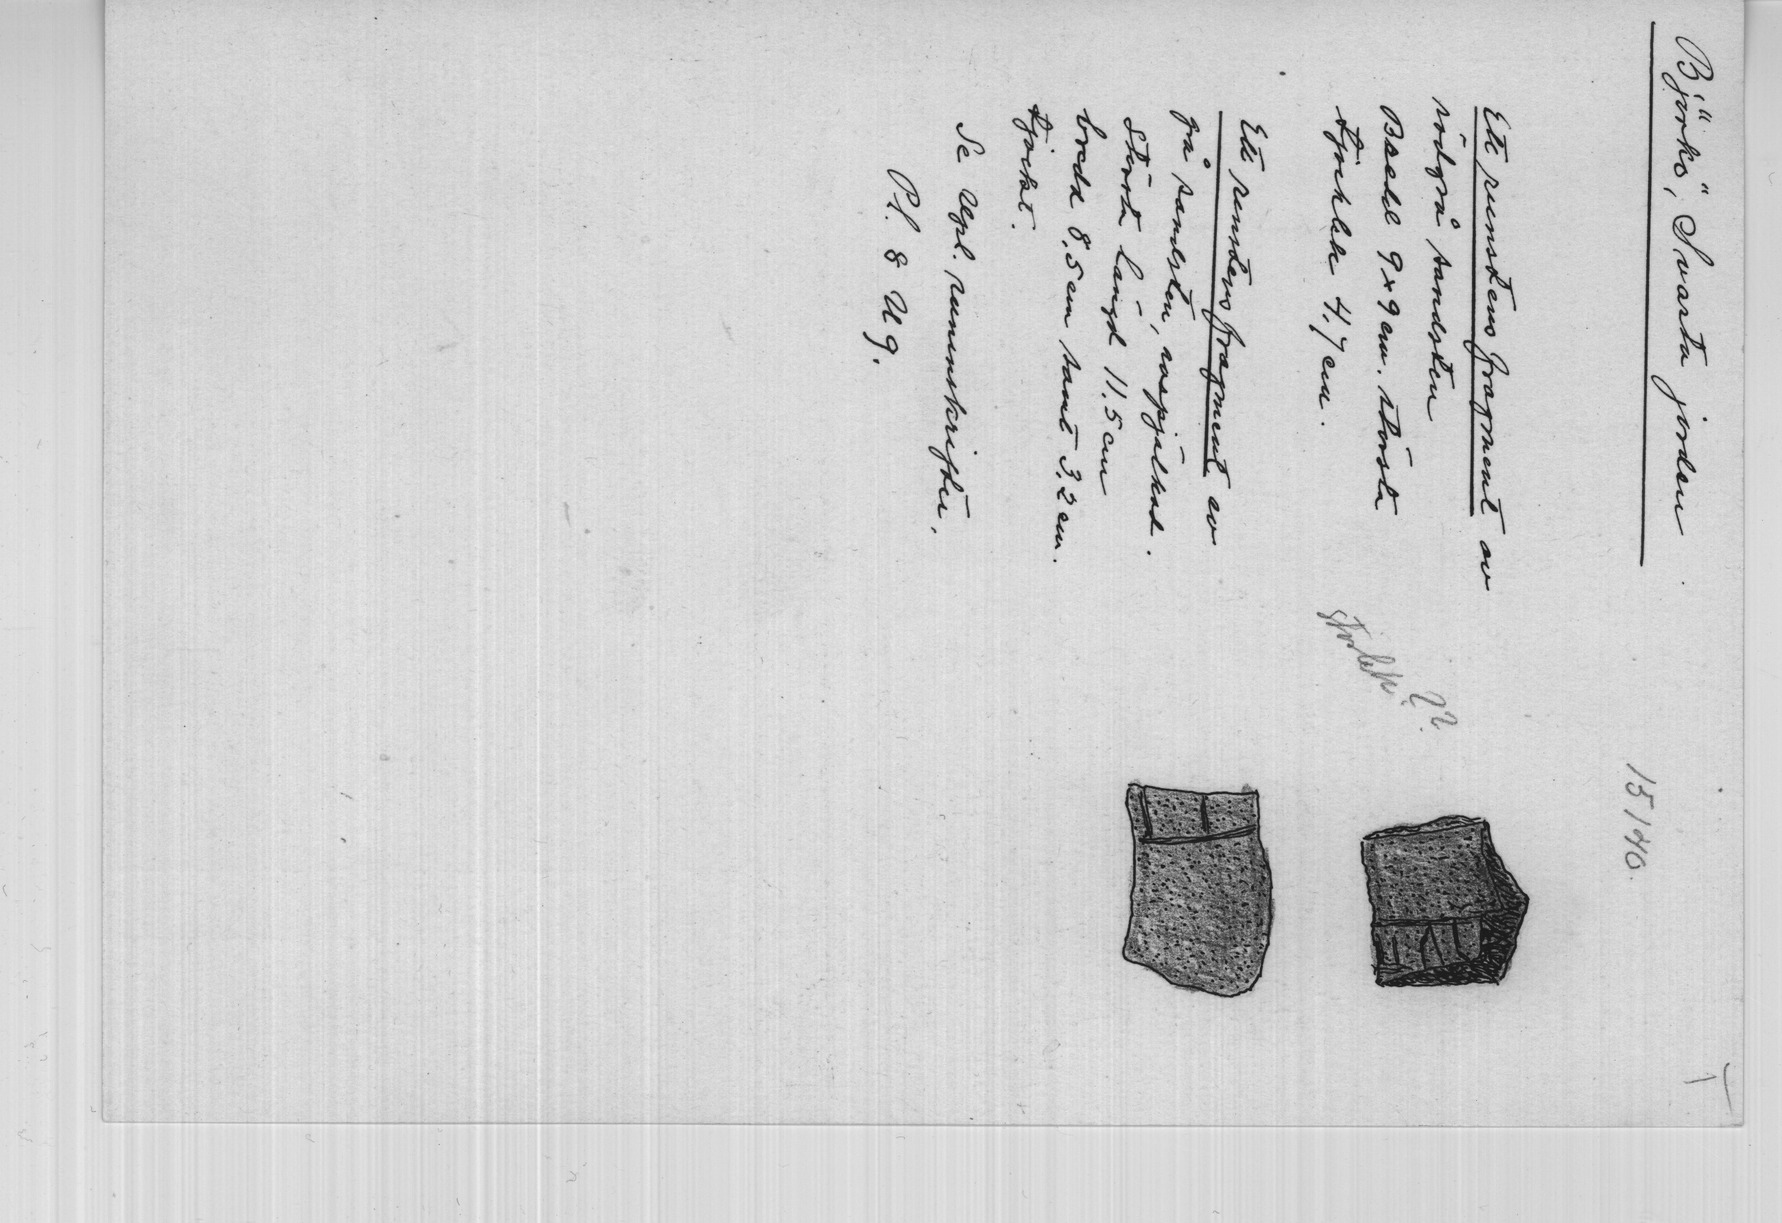 Björkö, Svarta jorden
15140.
Ett runstensfragment av
rödgrå sandsten
Bredd 9×9 cm. största
tjocklek 4,7 cm.
Ett runstensfragment av
grå sandsten,
Största längd 11.5 cm
bredd 8,5 cm samt 3,2 cm.
tjockt.
Se Upl. runinskrifter.
Pl. 8 U 9.